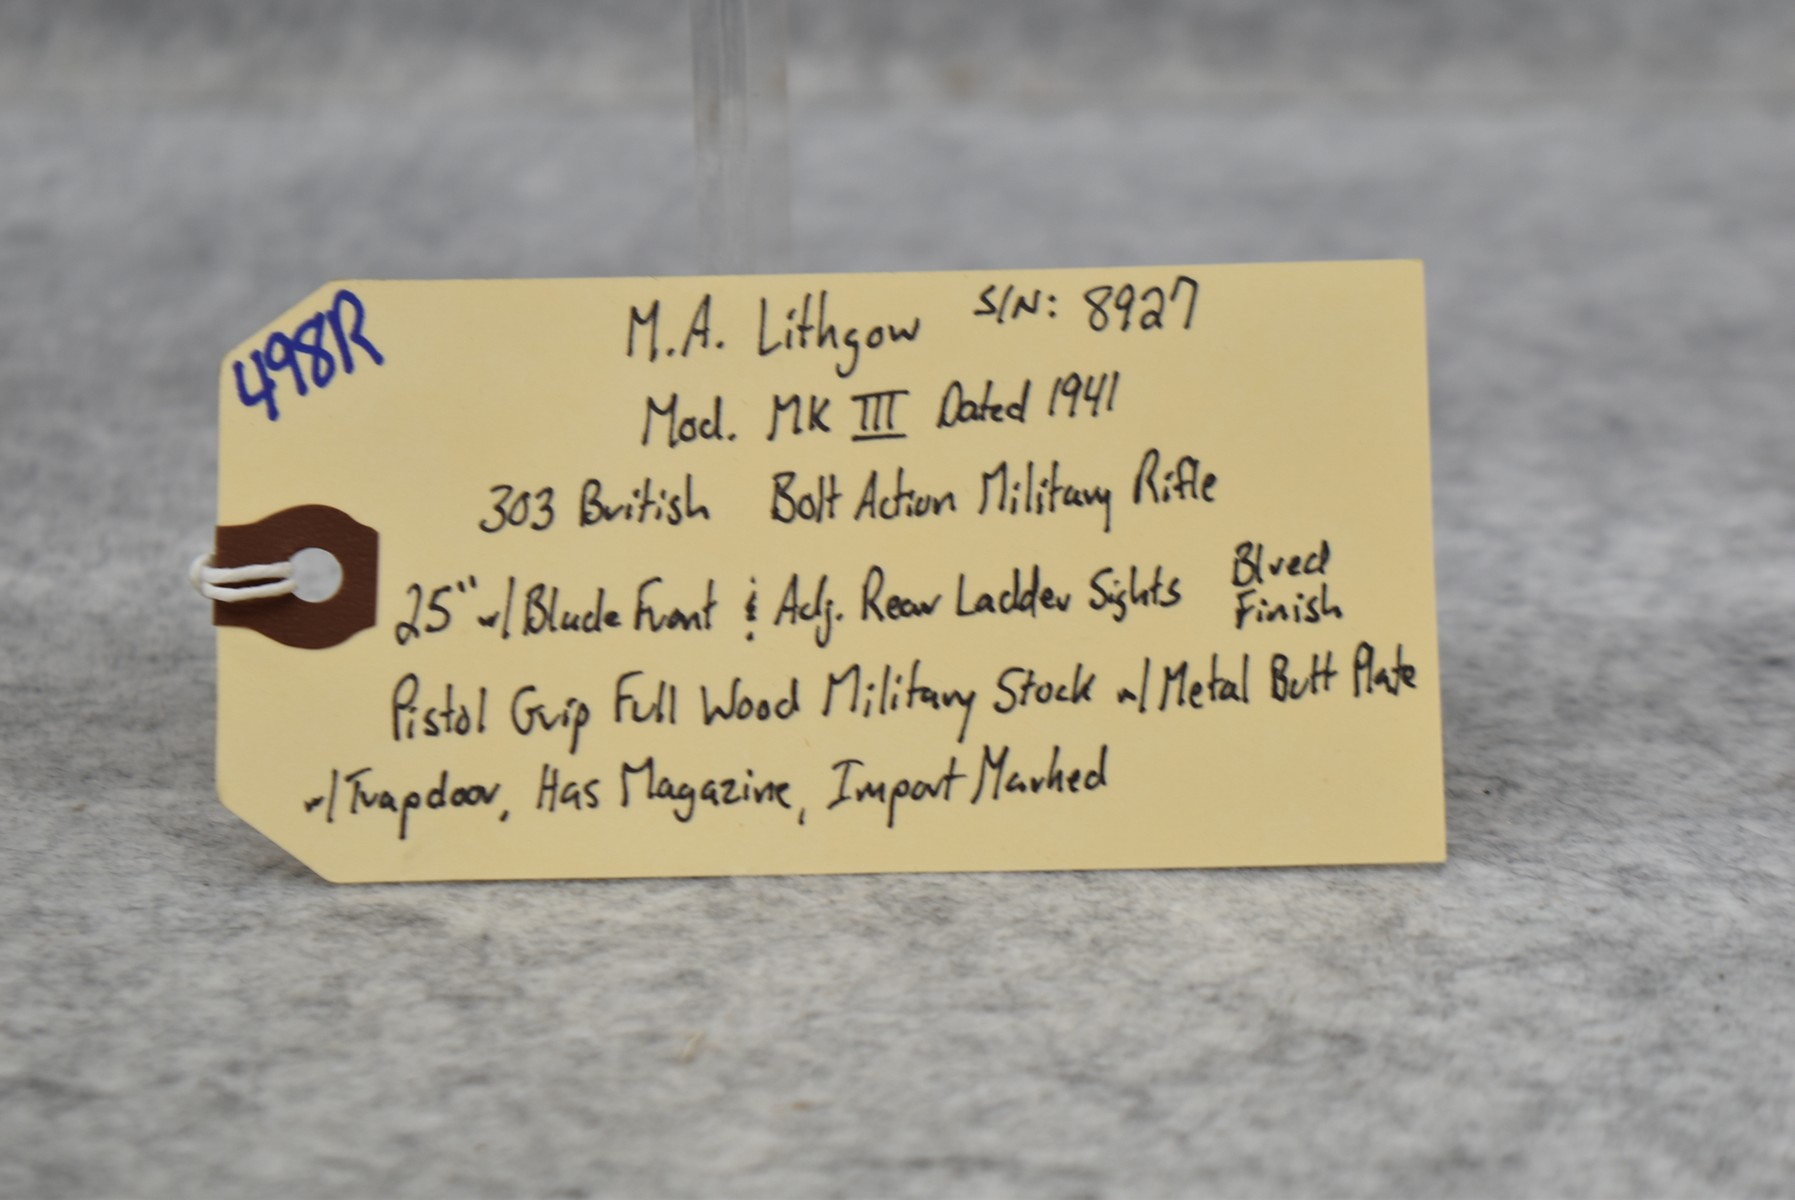 498R
M.A. Lithgow S/N: 8927
Mod. MK III Dated 1941
303 British Bolt Action Military Rifle
25" w/ Blade Front & Adj. Rear Ladder Sights Blued Finish
Pistol Grip Full Wood Military Stock w/ Metal Butt Plate
w/ Trapdoor, Has Magazine, Import Marked